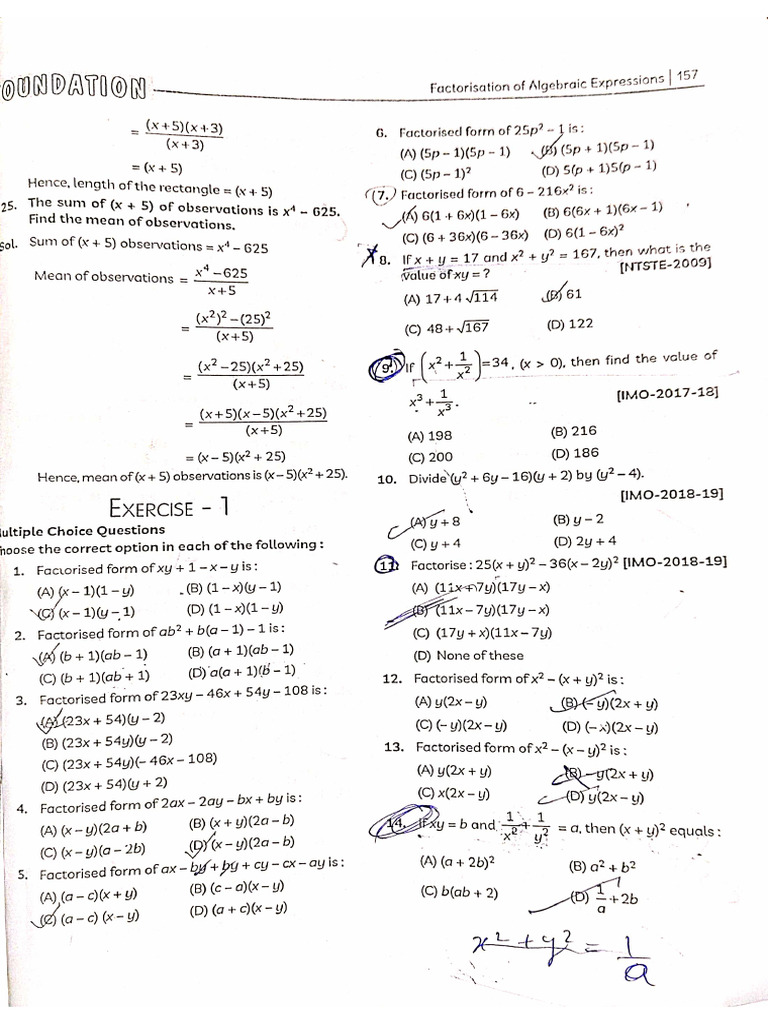 OUNDATION
Factorisation of Algebraic Expressions | 157
= (x + 5)(x + 3) / (x + 3)
= (x + 5)
Hence, length of the rectangle = (x + 5)
25. The sum of (x + 5) of observations is x⁴ – 625.
Find the mean of observations.
Sol. Sum of (x + 5) observations = x⁴ – 625
Mean of observations = (x⁴ – 625) / (x + 5)
= ((x²)² – (25)²) / (x + 5)
= (x² – 25)(x² + 25) / (x + 5)
= (x + 5)(x – 5)(x² + 25) / (x + 5)
= (x – 5)(x² + 25)
Hence, mean of (x + 5) observations is (x – 5)(x² + 25).
EXERCISE – 1
ultiple Choice Questions
hoose the correct option in each of the following :
1. Factorised form of xy + 1 – x – y is :
(A) (x – 1)(1 – y) (B) (1 – x)(y – 1)
(C) (x – 1)(y – 1) (D) (1 – x)(1 – y)
2. Factorised form of ab² + b(a – 1) – 1 is :
(A) (b + 1)(ab – 1) (B) (a + 1)(ab – 1)
(C) (b + 1)(ab + 1) (D) a(a + 1)(b – 1)
3. Factorised form of 23xy – 46x + 54y – 108 is :
(A) (23x + 54)(y – 2)
(B) (23x + 54y)(y – 2)
(C) (23x + 54y)(– 46x – 108)
(D) (23x + 54)(y + 2)
4. Factorised form of 2ax – 2ay – bx + by is :
(A) (x – y)(2a + b) (B) (x + y)(2a – b)
(C) (x – y)(a – 2b) (D) (x – y)(2a – b)
5. Factorised form of ax – by + by + cy – cx – ay is :
(A) (a – c)(x + y) (B) (c – a)(x – y)
(C) (a – c) (x – y) (D) (a + c)(x – y)
6. Factorised form of 25p² – 1 is :
(A) (5p – 1)(5p – 1) (B) (5p + 1)(5p – 1)
(C) (5p – 1)² (D) 5(p + 1)5(p – 1)
7. Factorised form of 6 – 216x² is :
(A) 6(1 + 6x)(1 – 6x) (B) 6(6x + 1)(6x – 1)
(C) (6 + 36x)(6 – 36x) (D) 6(1 – 6x)²
8. If x + y = 17 and x² + y² = 167, then what is the
value of xy = ? [NTSTE-2009]
(A) 17 + 4√114 (B) 61
(C) 48 + √167 (D) 122
9. If (x² + 1/x²) = 34, (x > 0), then find the value of
x³ + 1/x³. [IMO-2017-18]
(A) 198 (B) 216
(C) 200 (D) 186
10. Divide (y² + 6y – 16)(y + 2) by (y² – 4).
[IMO-2018-19]
(A) y + 8 (B) y – 2
(C) y + 4 (D) 2y + 4
11. Factorise : 25(x + y)² – 36(x – 2y)² [IMO-2018-19]
(A) (11x + 7y)(17y – x)
(B) (11x – 7y)(17y – x)
(C) (17y + x)(11x – 7y)
(D) None of these
12. Factorised form of x² – (x + y)² is :
(A) y(2x – y) (B) (– y)(2x + y)
(C) (– y)(2x – y) (D) (– x)(2x – y)
13. Factorised form of x² – (x – y)² is :
(A) y(2x + y) (B) –y(2x + y)
(C) x(2x – y) (D) y(2x – y)
14. If xy = b and 1/x² + 1/y² = a, then (x + y)² equals :
(A) (a + 2b)² (B) a² + b²
(C) b(ab + 2) (D) 1/a + 2b
x² + y² = 1/a